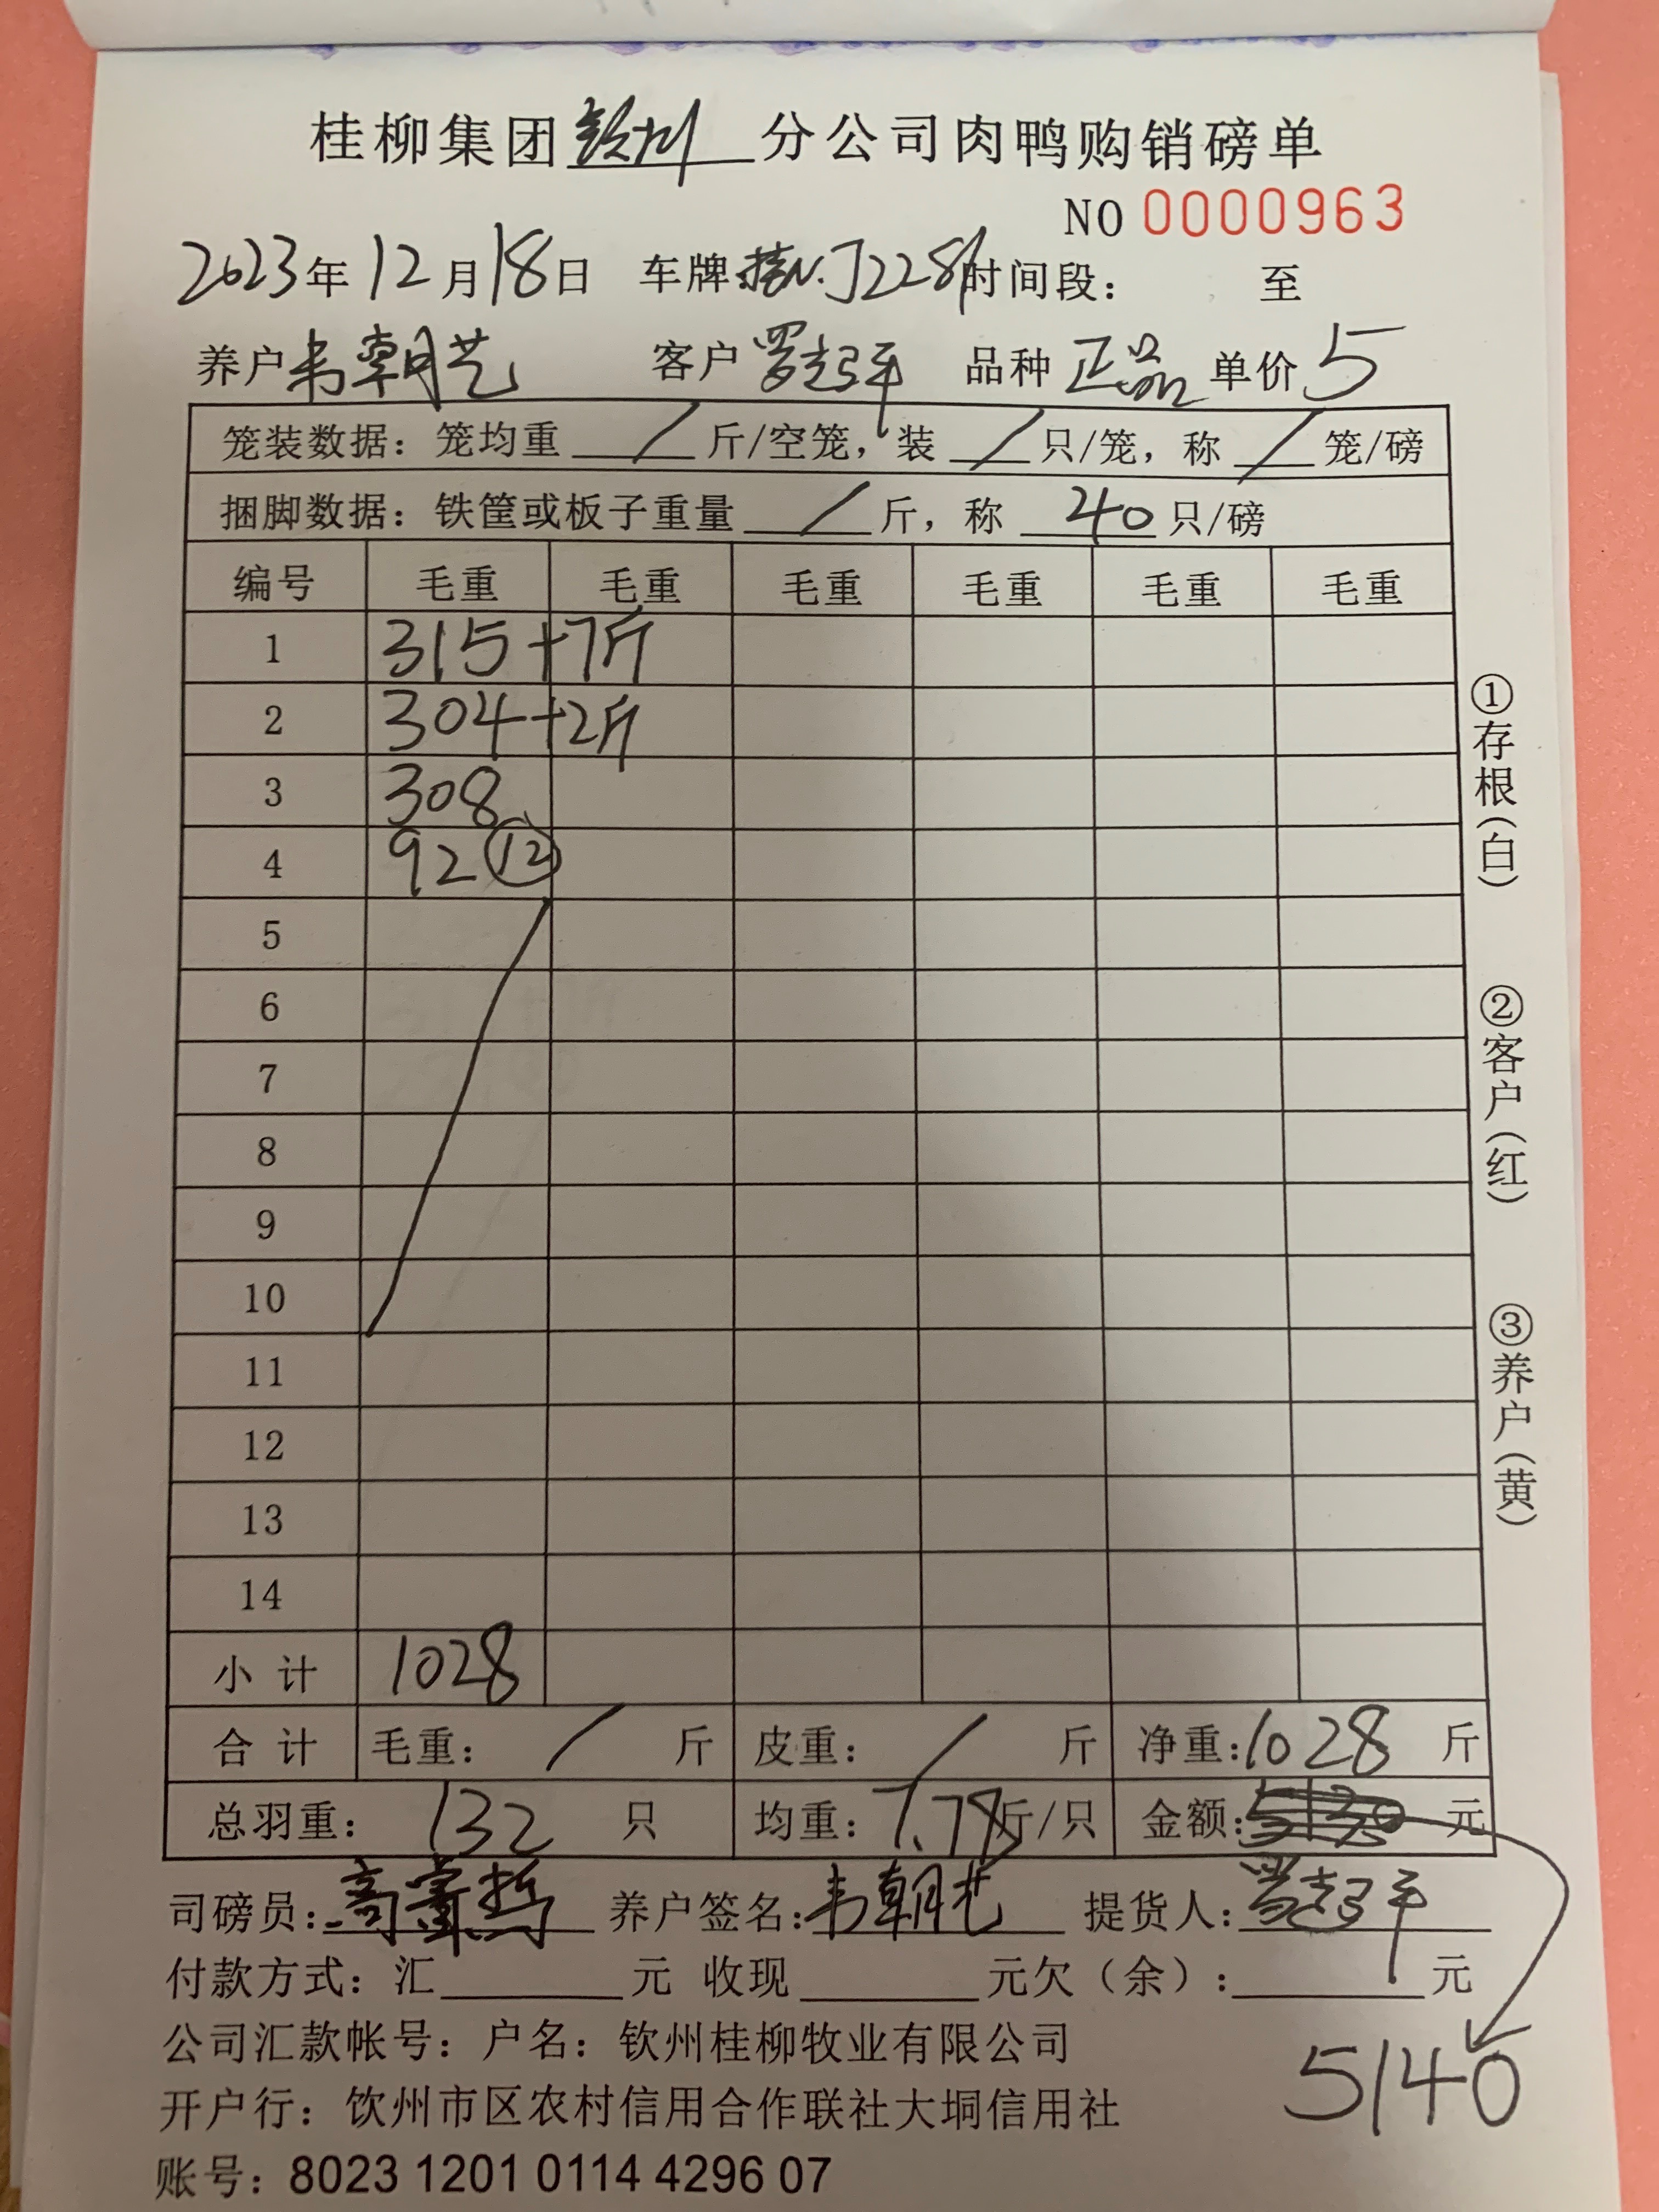 桂柳集团钦州分公司肉鸭购销磅单
NO 0000963
2023年12月18日 车牌桂N·J2281时间段： 至
养户韦朝艺 客户罗起平 品种正品 单价5
笼装数据：笼均重 / 斤/空笼，装 / 只/笼，称 / 笼/磅
捆脚数据：铁筐或板子重量 / 斤，称 40 只/磅
编号 毛重 毛重 毛重 毛重 毛重 毛重
1 315+7斤
2 304+2斤
3 308
4 92 ⑫
5
6
7
8
9
10
11
12
13
14
小计 1028
合计 毛重： / 斤 皮重： / 斤 净重：1028 斤
总羽重： 132 只 均重：7.78斤/只 金额：5130 元
司磅员： 养户签名：韦朝艺 提货人：罗起平
付款方式：汇 元 收现 元欠（余）： 元
5140
公司汇款帐号：户名：钦州桂柳牧业有限公司
开户行：钦州市区农村信用合作联社大垌信用社
账号：8023 1201 0114 4296 07
①存根（白）
②客户（红）
③养户（黄）